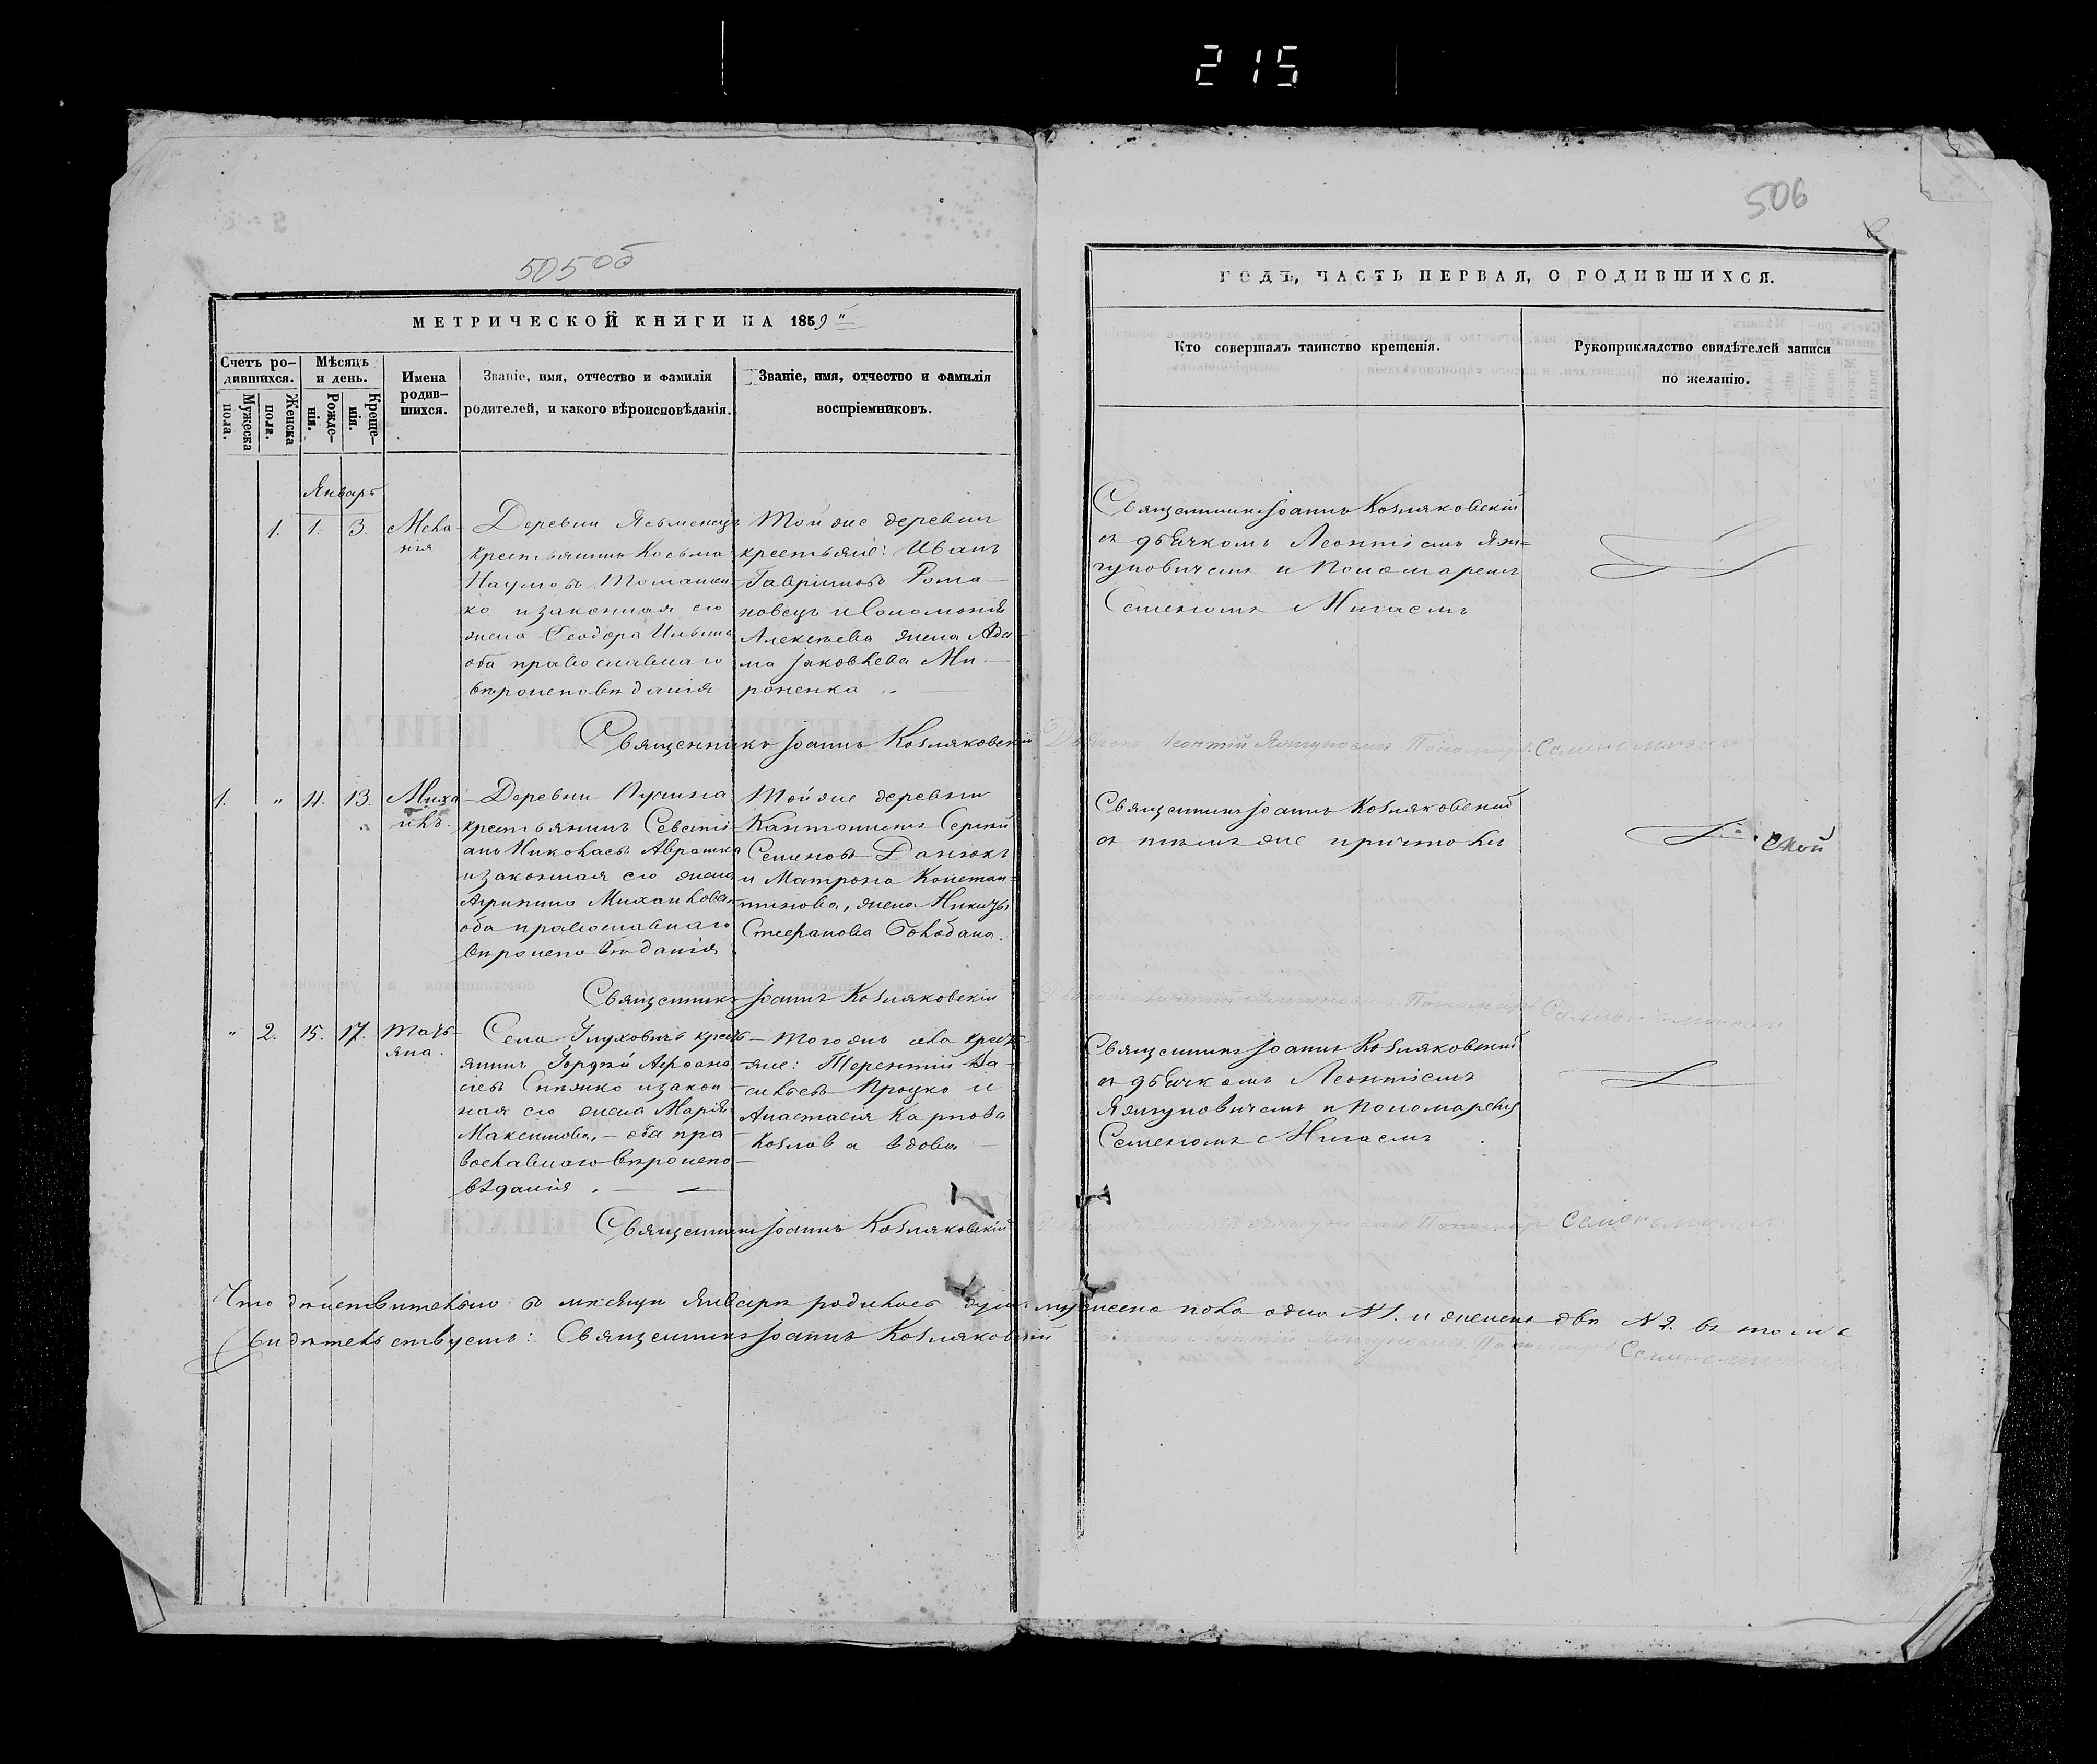 215
506
505об
МЕТРИЧЕСКОЙ КНИГИ НА 1859
ГОДЪ, ЧАСТЬ ПЕРВАЯ, О РОДИВШИХСЯ.
Счетъ ро-
дившихся.
Мужеска
пола.
Женска
пола.
Мѣсяцъ
и день.
Рожде-
нія.
Креще-
нія.
Имена
родив-
шихся.
Званіе, имя, отчество и фамилія
родителей, и какого вѣроисповѣданія.
Званіе, имя, отчество и фамилія
воспріемниковъ.
Кто совершалъ таинство крещенія.
Рукоприкладство свидѣтелей записи
по желанію.
Январь
1. 1. 3.
Мела-
нія
Деревни
крестьянинъ Косьма
Наумовъ Томашен-
ко и законная его
жена Ѳеодора Ильина
оба православнаго
вѣроисповѣданія
Той же деревни
крестьяне: Иванъ
Гавріиловъ Рома-
новецъ и Соломонія
Алексѣева жена Ада-
ма Іаковлева Ми-
роненка
Священникъ Іоаннъ Козляковскій
съ дьячкомъ Леонтіемъ Яж-
гуновичемъ и Пономаремъ
Семеномъ Мигаемъ
Священникъ Іоаннъ Козляковскій
1. " 11. 13.
Миха-
илъ.
Деревни
крестьянинъ Севасті-
анъ Николаевъ Аврамко
и законная его жена
Агрипина Михаилова,
оба православнаго
вѣроисповѣданія.
Той же деревни
Кантонистъ Сергій
Семеновъ Данюкъ
и Матрона Констан-
тинова, жена Никиты
Стефанова
Священникъ Іоаннъ Козляковскій
съ тѣмъ же причтомъ
Священникъ Іоаннъ Козляковскій
" 2. 15. 17.
Тать-
яна.
Села Глуховичъ кресть-
янинъ Гордѣй Аѳана-
сіевъ и закон-
ная его жена Марія
Максимова, — оба пра-
вославнаго вѣроиспо-
вѣданія.
Того жъ села кресть-
яне: Терентій Ва-
сильевъ Процко и
Анастасія Карпова
Козлова вдова
Священникъ Іоаннъ Козляковскій
съ дьячкомъ Леонтіемъ
Яжгуновичемъ и Пономаремъ
Семеномъ Мигаемъ
Священникъ Іоаннъ Козляковскій
Что дѣйствительно въ мѣсяцѣ Январѣ родилось душъ мужеска пола одна №1. и женска двѣ №2. въ томъ
Свидѣтельствуетъ: Священникъ Іоаннъ Козляковскій